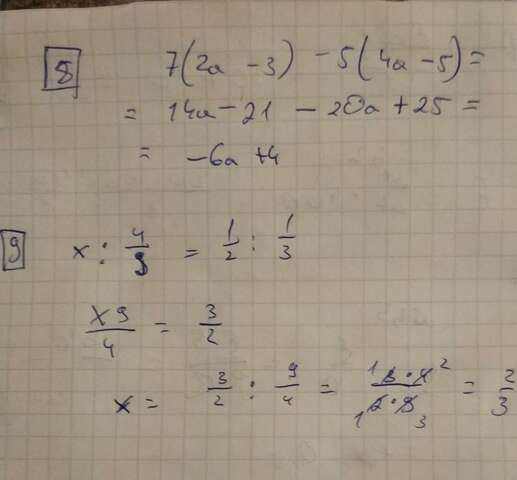 8 7(2a - 3) - 5(4a - 5) =
= 14a - 21 - 20a + 25 =
= -6a + 4
9 x : 4/9 = 1/2 : 1/3
x9/4 = 3/2
x = 3/2 : 9/4 = 1 3 · 4 2 / 1 2 · 9 3 = 2/3